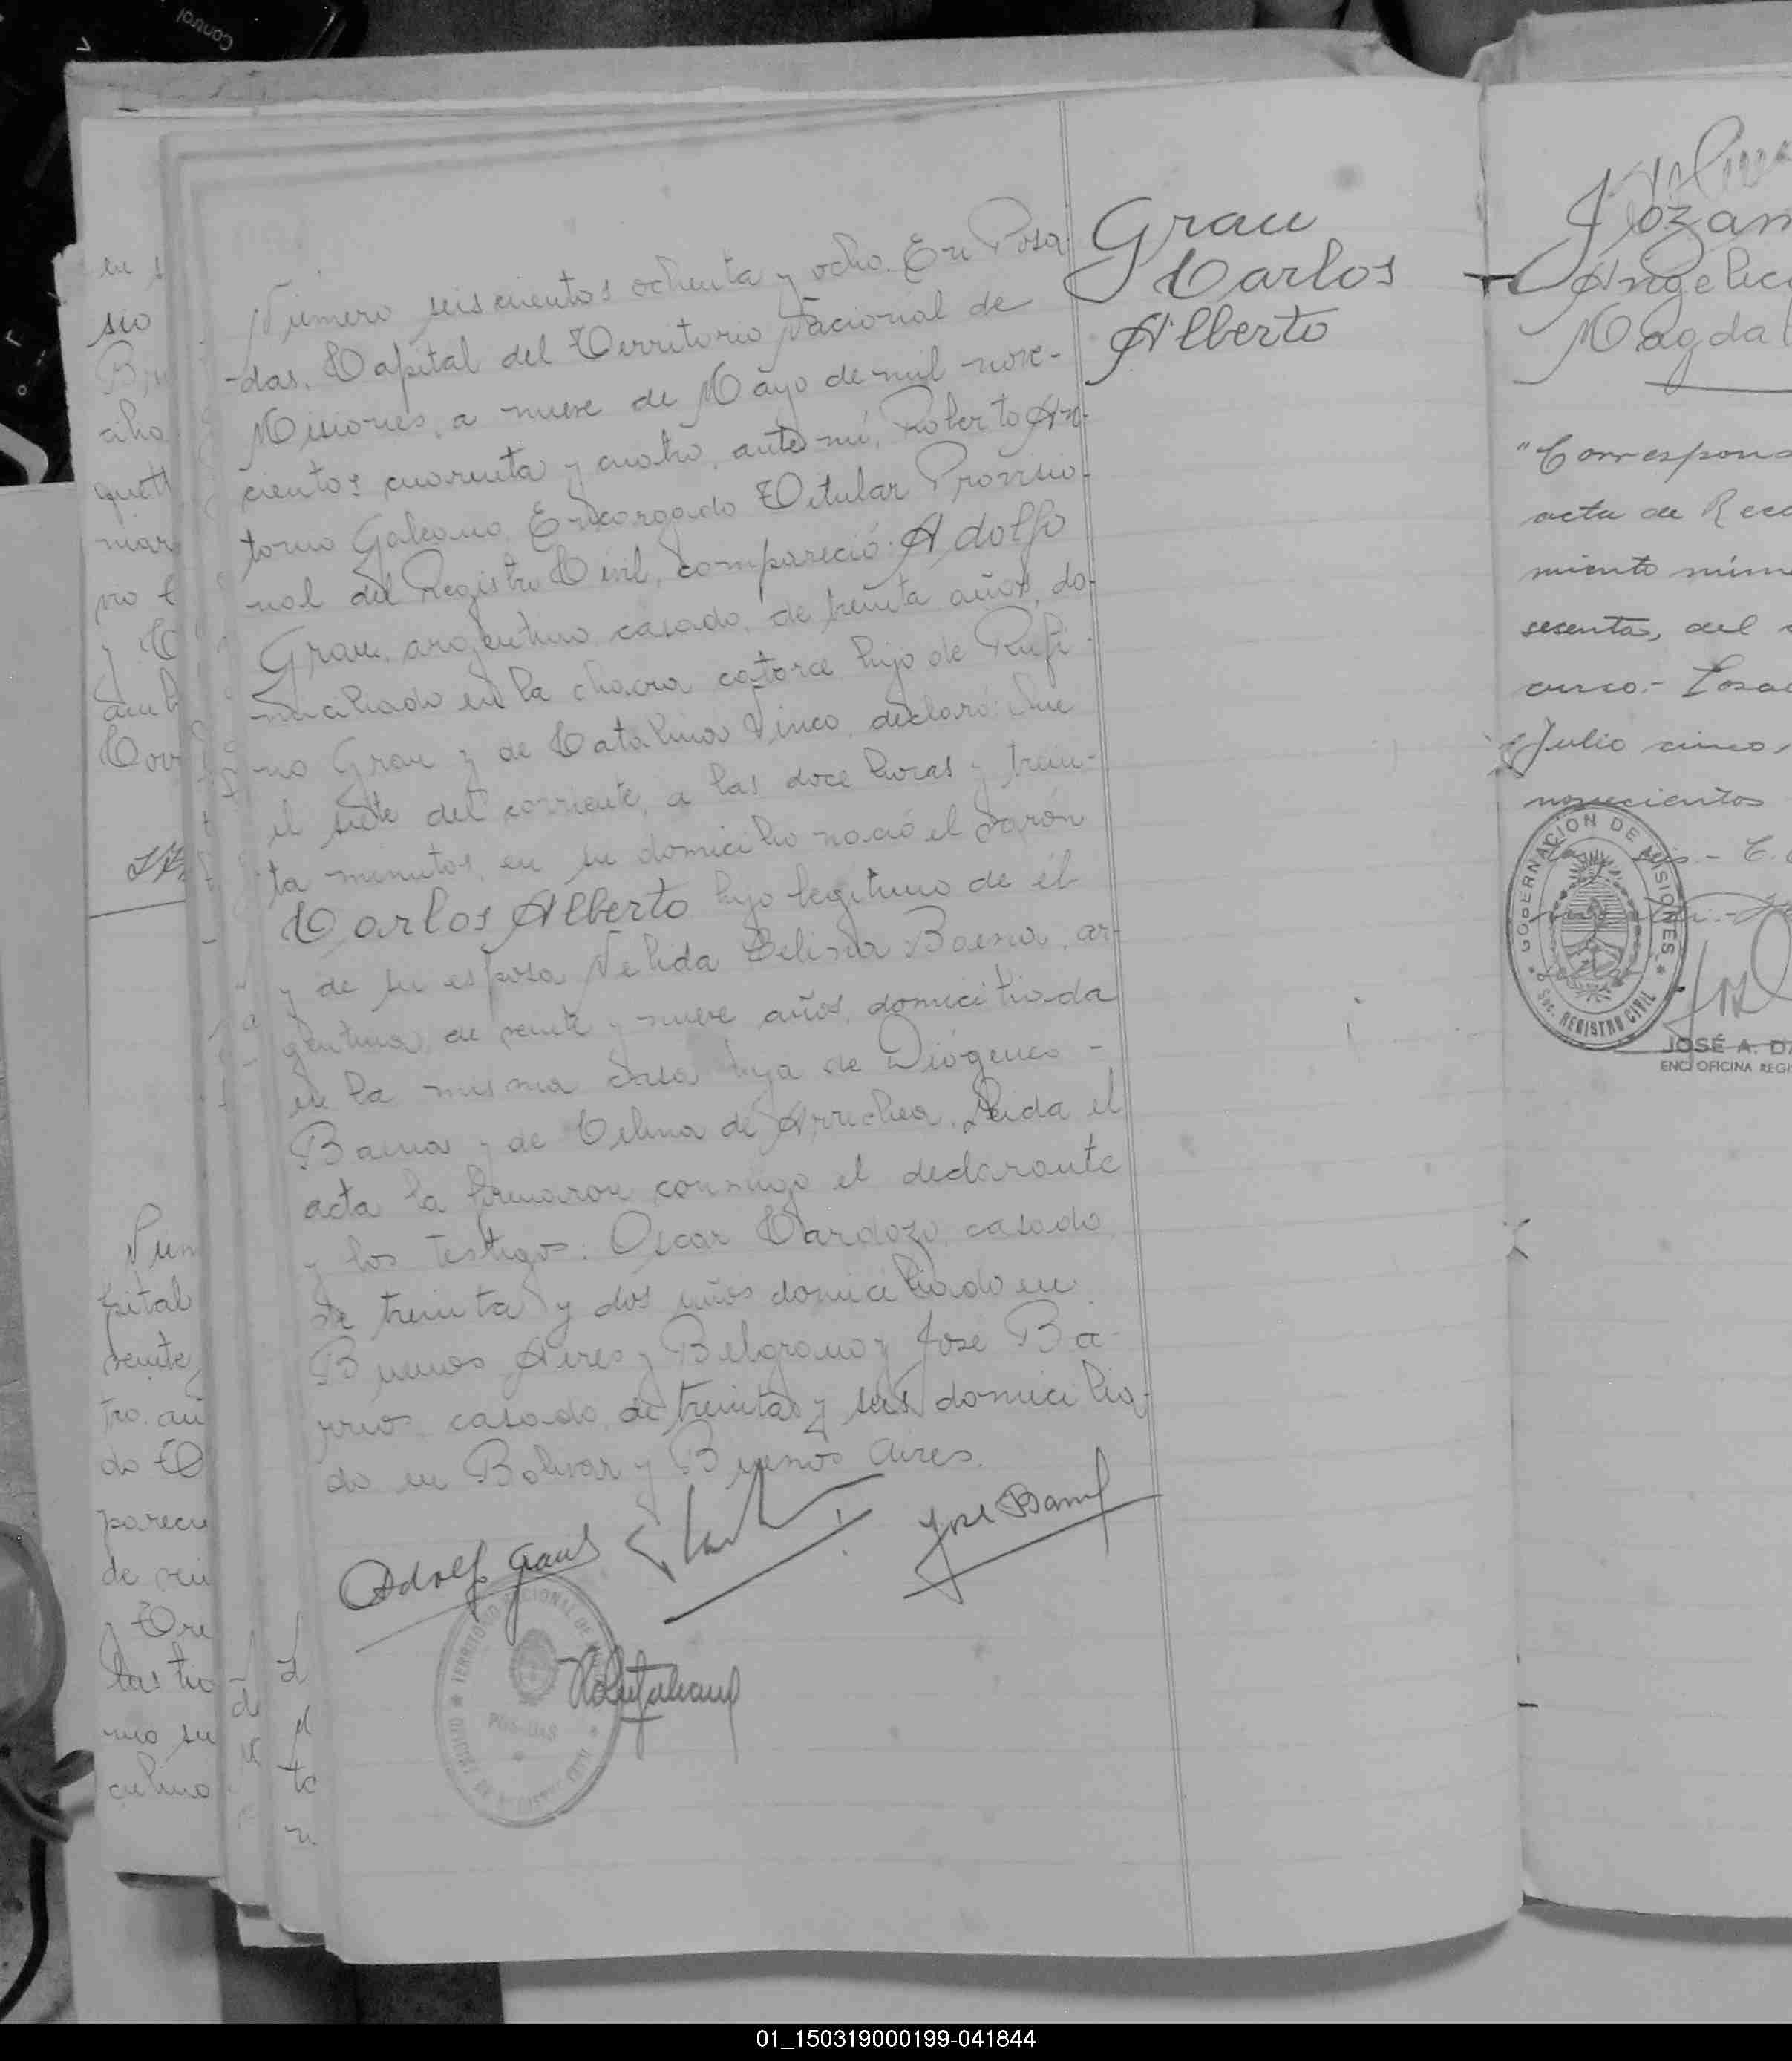 Control
Número seiscientos ochenta y ocho. En Posa
-das, Capital del Territorio Nacional de
Misiones, a nueve de Mayo de mil nove-
cientos cuarenta y cuatro, ante mí, Roberto An-
tonio Galeano Encargado Titular Provisio-
nal del Registro Civil, compareció: Adolfo
Grau, argentino, casado, de treinta años, do-
miciliado en la chacra catorce hijo de Rufi-
no Grau y de Catalina Vinco, declaró: Que
el siete del corriente, a las doce horas y trein-
ta minutos, en su domicilio nació el varón
Carlos Alberto hijo legítimo de él
y de su esposa Nelida Celina Baena, ar-
gentina, de veinte y nueve años, domiciliada
en la misma casa hija de Diógenes -
Baena y de Celina de Arrechea. Leida el
acta la firmaron conmigo el declarante
y los testigos: Oscar Cardozo, casado,
de treinta y dos años domiciliado en
Buenos Aires y Belgrano y José Ba-
rrios, casado, de treinta y seis domicilia-
do en Bolivar y Buenos Aires.
Adolf Grau José Barri
TERRITORIO NACIONAL DE
POSADAS
Grau
Carlos
Alberto
Lozan
Angelic
Magdal
"Correspond
acta de Reco
miento núme
sesenta, del
Julio cinco,
novecientos
GOBERNACIÓN DE MISIONES
Sec. REGISTRO CIVIL
JOSÉ A. D
ENC. OFICINA REGI
sio
aho
quett
mar
Núm
pital
veinte
tro, an
do T
parecu
de vei
mo su
culino
01_150319000199-041844